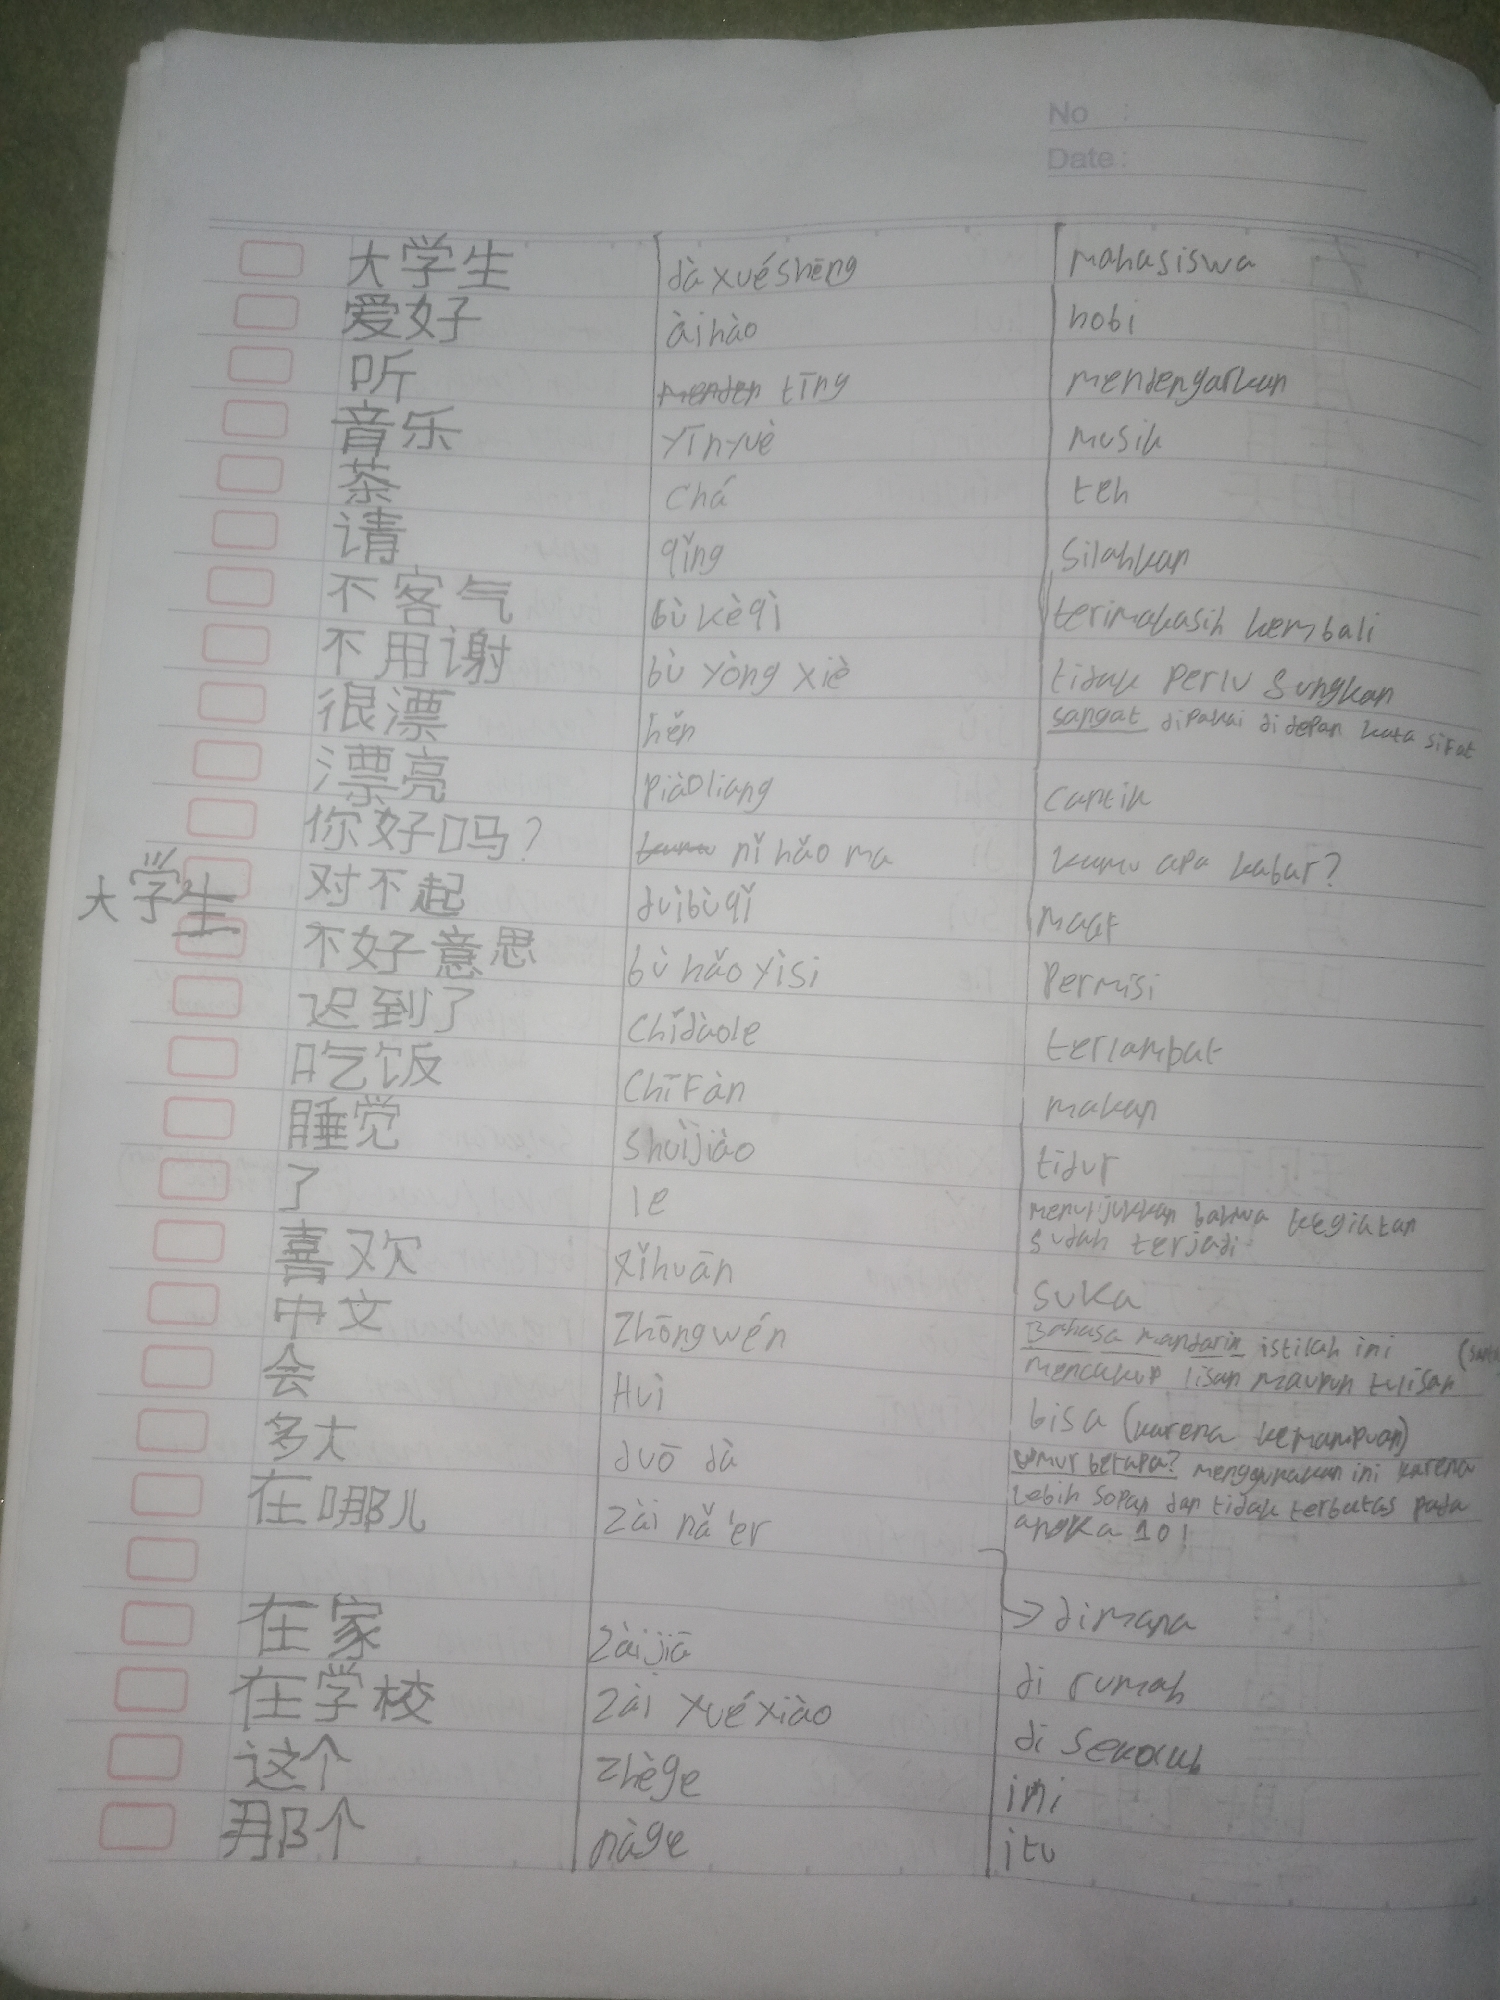 No :
Date :
大学生 dàxuéshēng mahasiswa
爱好 àihào hobi
听 tīng mendengarkan
音乐 yīnyuè musik
茶 chá teh
请 qǐng silahkan
不客气 bù kèqì terimakasih kembali
不用谢 bù yòng xiè tidak perlu sungkan
很漂 hěn sangat dipakai didepan kata sifat
漂亮 piàoliang cantik
你好吗? nǐ hǎo ma kamu apa kabar?
对不起 duìbùqǐ maaf
大学生
不好意思 bù hǎo yìsi permisi
迟到了 chídàole terlambat
吃饭 chīfàn makan
睡觉 shuìjiào tidur
了 le menunjukkan bahwa kegiatan
sudah terjadi
喜欢 xǐhuān suka
中文 zhōngwén Bahasa mandarin istilah ini
mencakup lisan maupun tulisan
会 Huì bisa (karena kemampuan)
多大 duō dà umur berapa? menggunakan ini karena
lebih sopan dan tidak terbatas pada
angka 10!
在哪儿 zài nǎ'er
→ dimana
在家 zàijiā di rumah
在学校 zài xuéxiào di sekolah
这个 zhège ini
那个 nàge itu